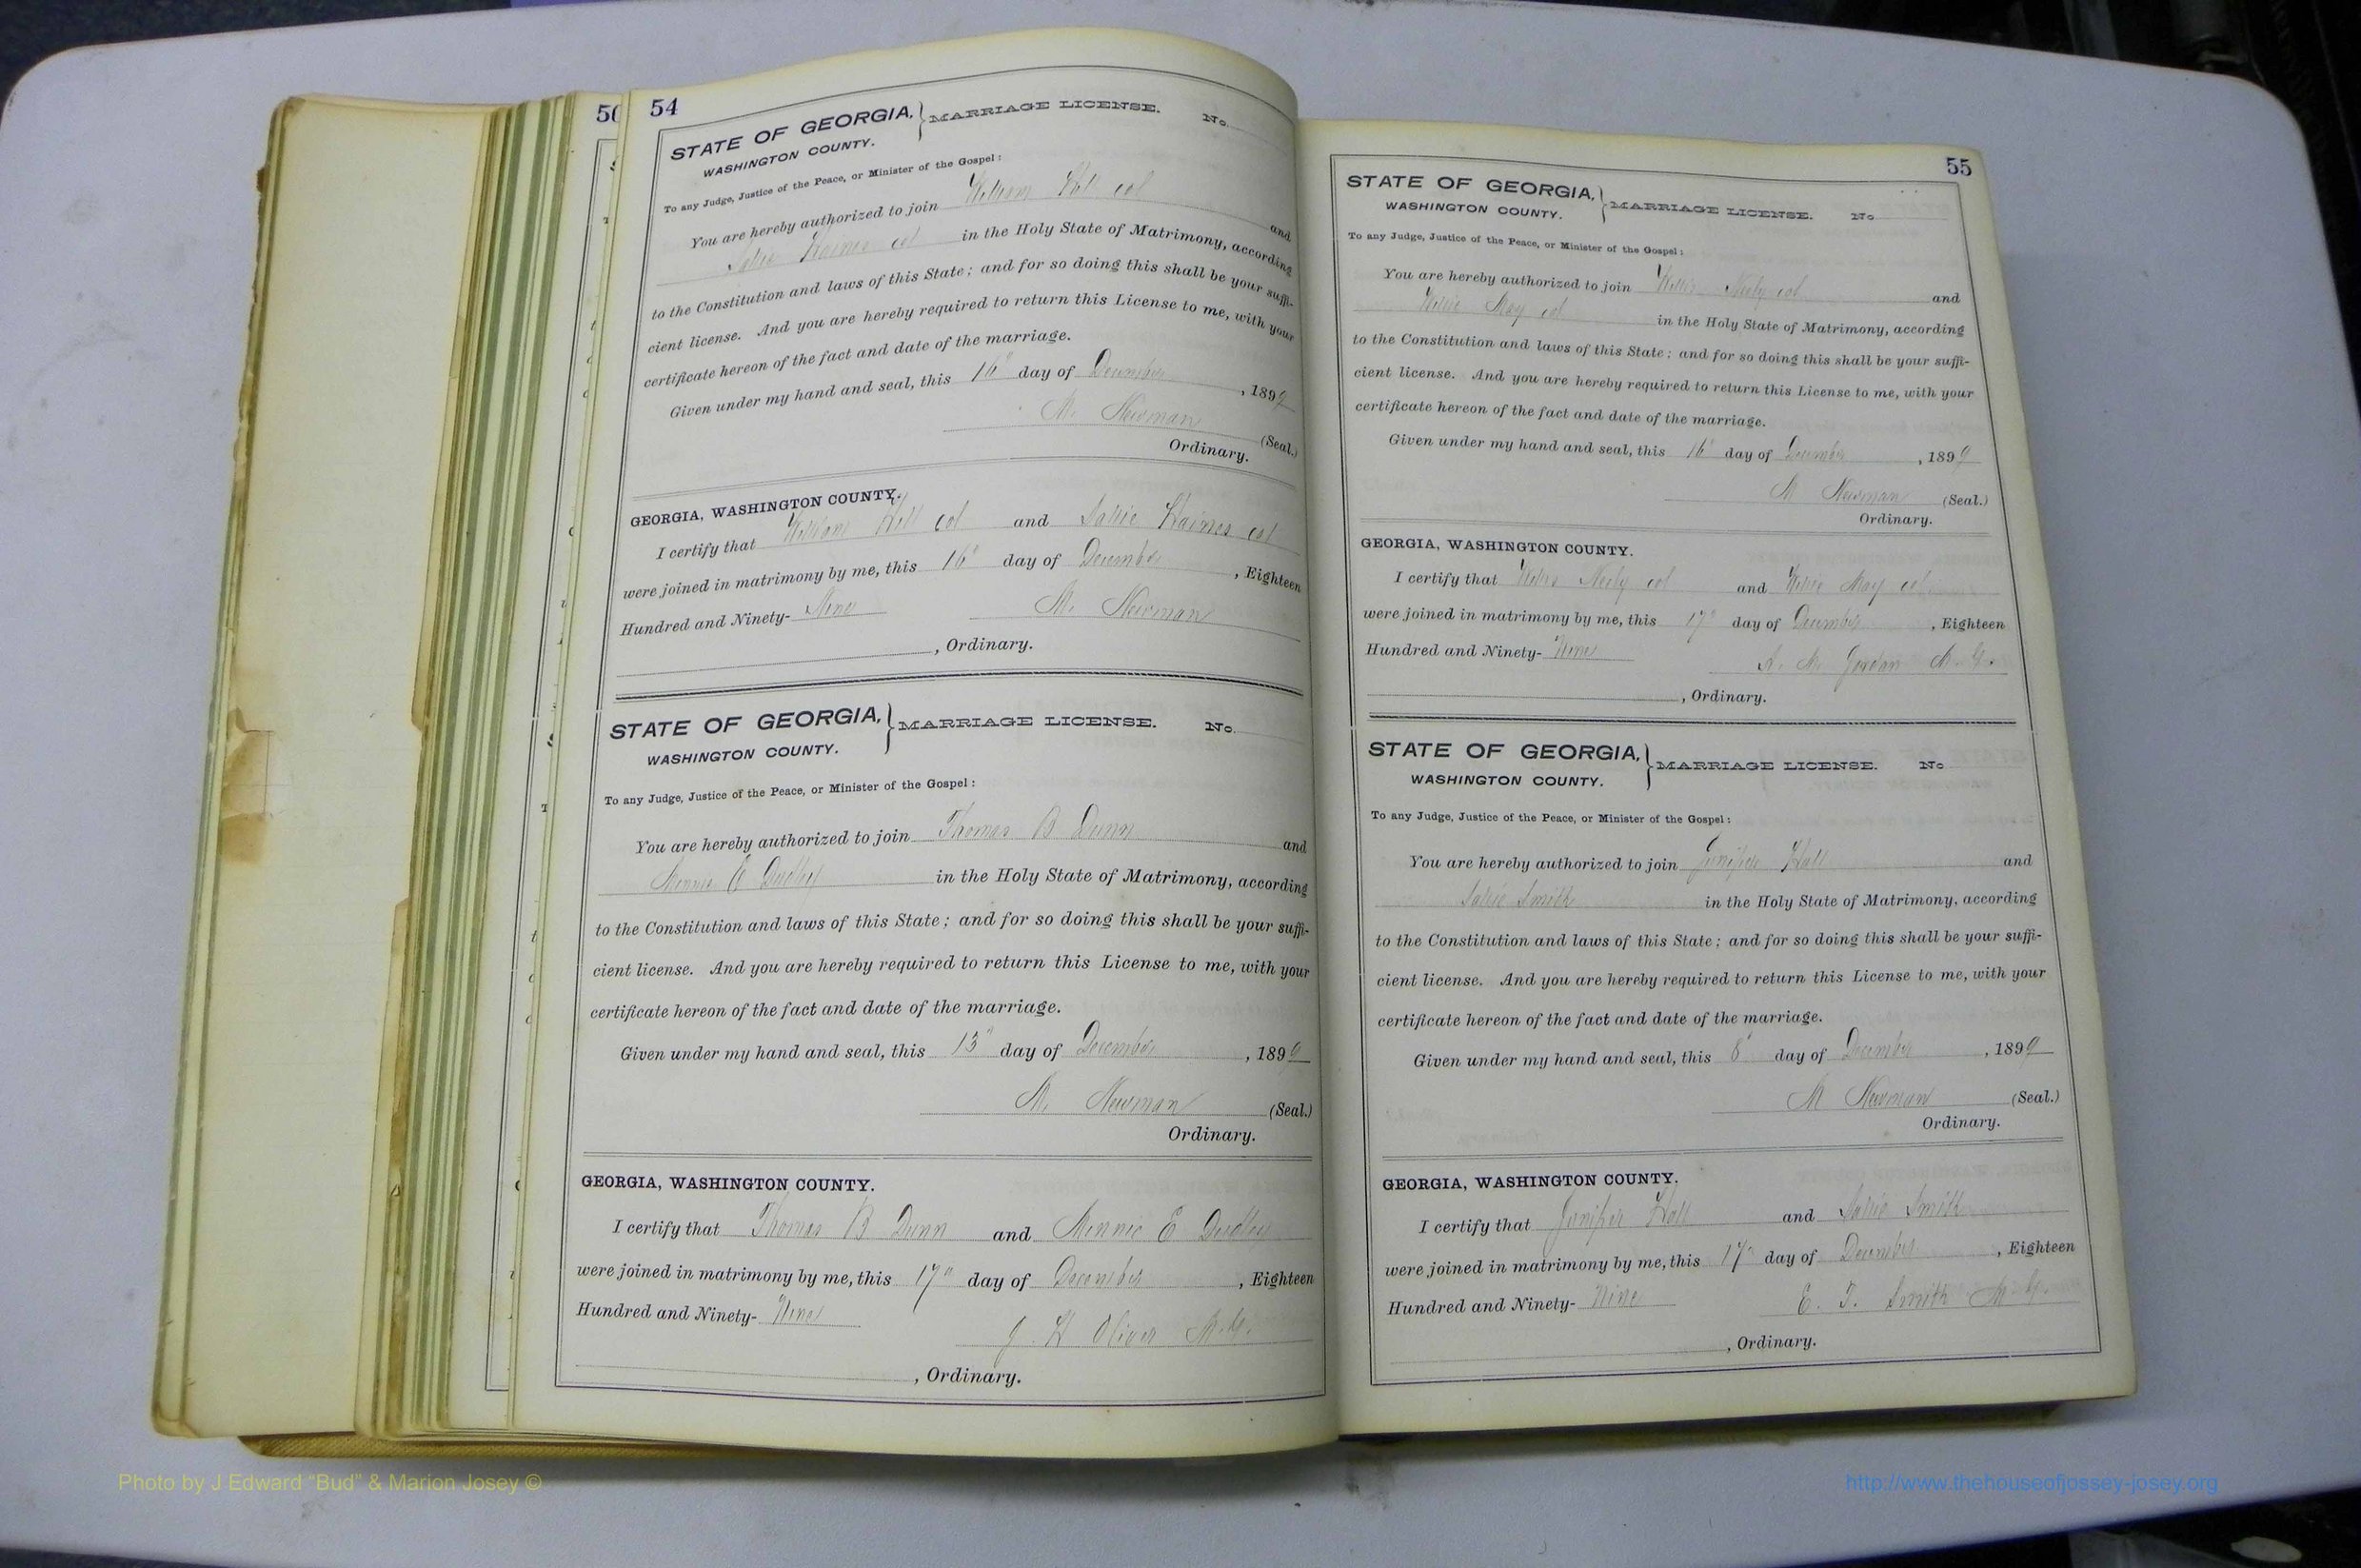 50
54
STATE OF GEORGIA, MARRIAGE LICENSE. No.
WASHINGTON COUNTY.
To any Judge, Justice of the Peace, or Minister of the Gospel:
You are hereby authorized to join William Hill col and
Sallie Haines col in the Holy State of Matrimony, according
to the Constitution and laws of this State; and for so doing this shall be your suffi-
cient license. And you are hereby required to return this License to me, with your
certificate hereon of the fact and date of the marriage.
Given under my hand and seal, this 16" day of December, 1899
M. Newman (Seal.)
Ordinary.
GEORGIA, WASHINGTON COUNTY.
I certify that William Hill col and Sallie Haines col
were joined in matrimony by me, this 16" day of December, Eighteen
Hundred and Ninety- Nine M. Newman
, Ordinary.
STATE OF GEORGIA, MARRIAGE LICENSE. No.
WASHINGTON COUNTY.
To any Judge, Justice of the Peace, or Minister of the Gospel:
You are hereby authorized to join Thomas B Dunn and
Minnie E Dudley in the Holy State of Matrimony, according
to the Constitution and laws of this State; and for so doing this shall be your suffi-
cient license. And you are hereby required to return this License to me, with your
certificate hereon of the fact and date of the marriage.
Given under my hand and seal, this day of December, 1899
M. Newman (Seal.)
Ordinary.
GEORGIA, WASHINGTON COUNTY.
I certify that Thomas B Dunn and Minnie E Dudley
were joined in matrimony by me, this 17" day of December, Eighteen
Hundred and Ninety- Nine J. H Oliver M.G.
, Ordinary.
55
STATE OF GEORGIA, MARRIAGE LICENSE. No
WASHINGTON COUNTY.
To any Judge, Justice of the Peace, or Minister of the Gospel:
You are hereby authorized to join Willis Neely col and
Willie May col in the Holy State of Matrimony, according
to the Constitution and laws of this State; and for so doing this shall be your suffi-
cient license. And you are hereby required to return this License to me, with your
certificate hereon of the fact and date of the marriage.
Given under my hand and seal, this 16" day of December, 1899
M Newman (Seal.)
Ordinary.
GEORGIA, WASHINGTON COUNTY.
I certify that Willis Neely col and Willie May col
were joined in matrimony by me, this 17" day of December, Eighteen
Hundred and Ninety- Nine A. M. Jordan M.G.
, Ordinary.
STATE OF GEORGIA, MARRIAGE LICENSE. No
WASHINGTON COUNTY.
To any Judge, Justice of the Peace, or Minister of the Gospel:
You are hereby authorized to join Junifer Hall and
Sallie Smith in the Holy State of Matrimony, according
to the Constitution and laws of this State; and for so doing this shall be your suffi-
cient license. And you are hereby required to return this License to me, with your
certificate hereon of the fact and date of the marriage.
Given under my hand and seal, this 8" day of December, 1899
M Newman (Seal.)
Ordinary.
GEORGIA, WASHINGTON COUNTY.
I certify that Junifer Hall and Sallie Smith
were joined in matrimony by me, this 17" day of December, Eighteen
Hundred and Ninety- Nine E. T. Smith M.G.
, Ordinary.
Photo by J Edward “Bud” & Marion Josey ©
http://www.thehouseofjossey-josey.org